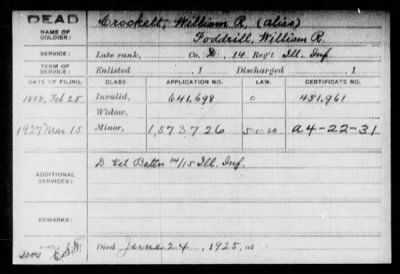 DEAD
NAME OF SOLDIER:
Crockett, William R. (alias)
Foddrill, William R.
SERVICE:
Late rank, Co. D, 14 Reg't Ill. Inf
TERM OF SERVICE
Enlisted , 1 Discharged , 1
DATE OF FILING. CLASS APPLICATION NO. LAW. CERTIFICATE NO.
1888, Feb 25 Invalid, 641,698 0 481,961
Widow,
1927 Mar 15 Minor, 1,573,726 5-1-20 A 4-22-31
ADDITIONAL SERVICES:
D Vet Battn 14/15 Ill. Inf.
REMARKS:
Died June 24, 1925, at